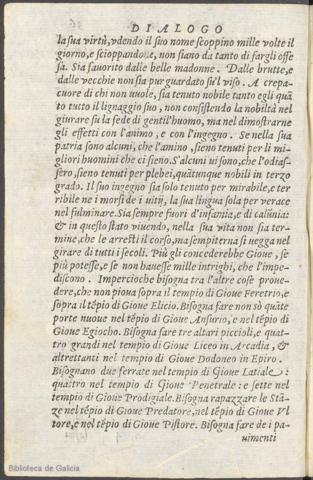 DIALOGO
la sua virtù, vdendo il suo nome scoppino mille volte il
giorno, e scioppando, e, non siano da tanto di fargli offe
sa. Sia fauorito dalle belle madonne. Dalle brutte, e
dalle vecchie non sia pur guardato su'l viso. A crepa-
cuore di chi non vuole, sia tenuto nobile tanto egli quã
to tutto il lignaggio suo, non consistendo la nobiltà nel
giurare su la fede di gentil'huomo, ma nel dimostrarne
gli effetti con l'animo, e con l'ingegno. Se nella sua
patria sono alcuni, che l'amino, sieno tenuti per li mi-
gliori huomini che ci sieno. S'alcuni ui sono, che l'odias-
sero, sieno tenuti per plebei, quãtunque nobili in terzo
grado. Il suo ingegno sia solo tenuto per mirabile, e ter
ribile ne i morsi de i uitij, la sua lingua sola per verace
nel fulminare. Sia sempre fuori d'infamia, e di calũnia:
& in questo stato viuendo, nella sua vita non sia ter-
mine, che le arresti il corso, ma sempiterna si uegga nel
girare di tutti i secoli. Più gli concederebbe Gioue, se
più potesse, e se non hauesse mille intrighi, che l'impe-
discono. Impercioche bisogna tra l'altre cose proue-
dere, che non pioua sopra il tempio di Gioue Feretrio, e
sopra il tẽpio di Gioue Elicio. Bisogna fare non sò quãte
porte nuoue nel tẽpio di Gioue Ansurio, e nel tẽpio di
Gioue Egiocho. Bisogna fare tre altari piccioli, e quat-
tro grandi nel tempio di Gioue Liceo in Arcadia, &
altrettanti nel tempio di Gioue Dodoneo in Epiro.
Bisognano due ferrate nel tempio di Gioue Latiale:
quattro nel tempio di Gioue Penetrale: e sette nel
tempio di Gioue Prodigiale. Bisogna rapazzare le Stã-
ze nel tẽpio di Gioue Predatore, nel tẽpio di Gioue Vl
tore, e nel tẽpio di Gioue Pistore. Bisogna fare de i pa-
uimenti
Biblioteca de Galicia